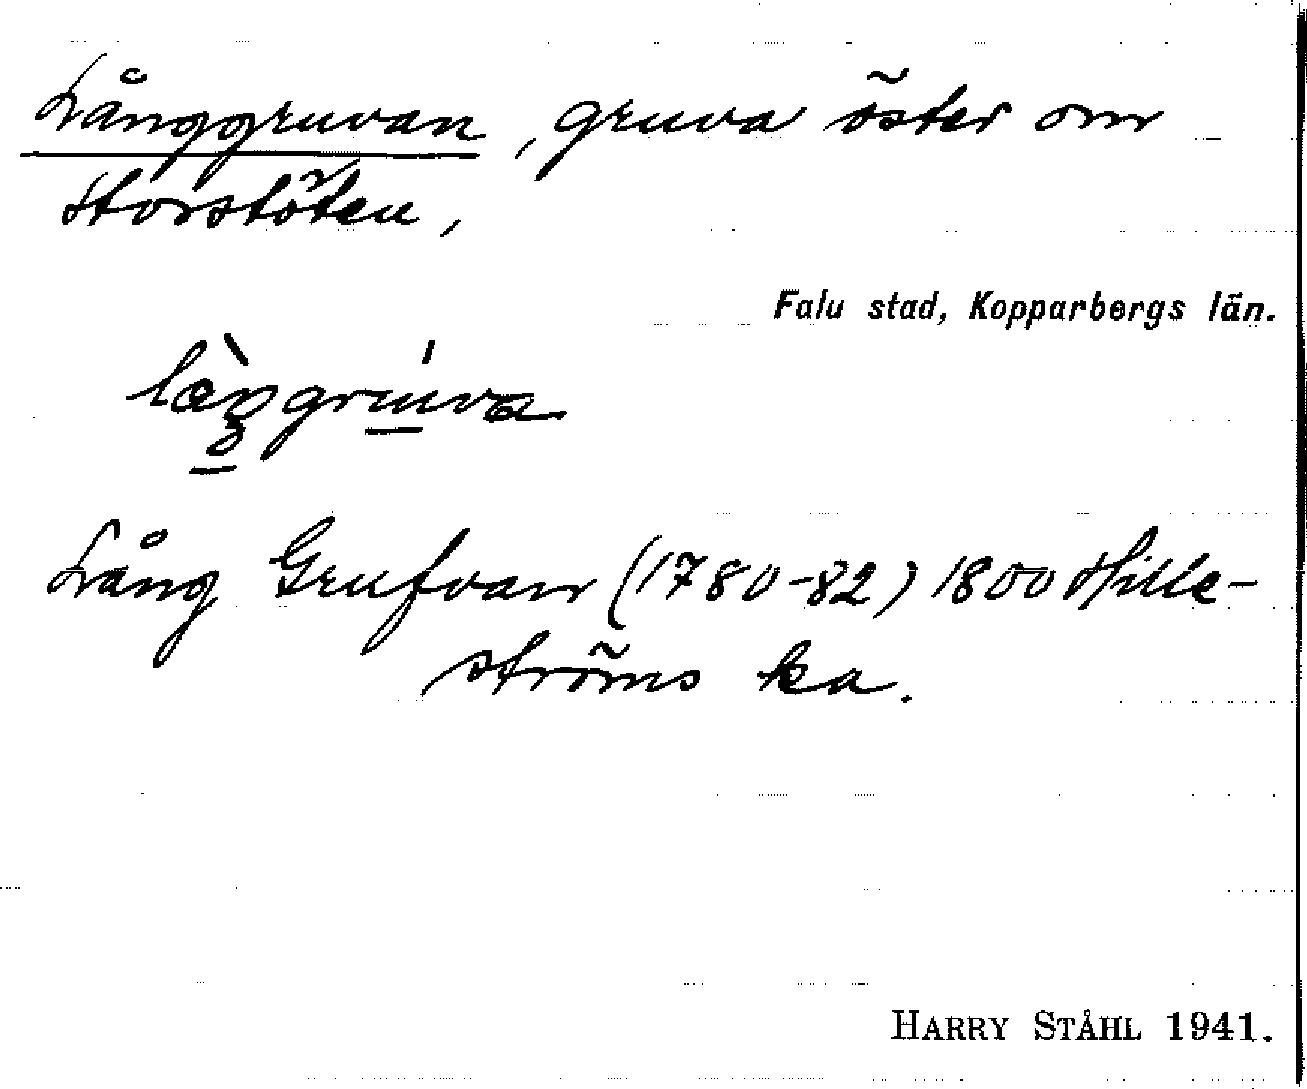 Långgruvan, gruva öster om
Storstöten,
Falu stad, Kopparbergs län.
Lång Grufvan (1780-82) 1800 Hille-
ströms ka.
HARRY STÅHL 1941.